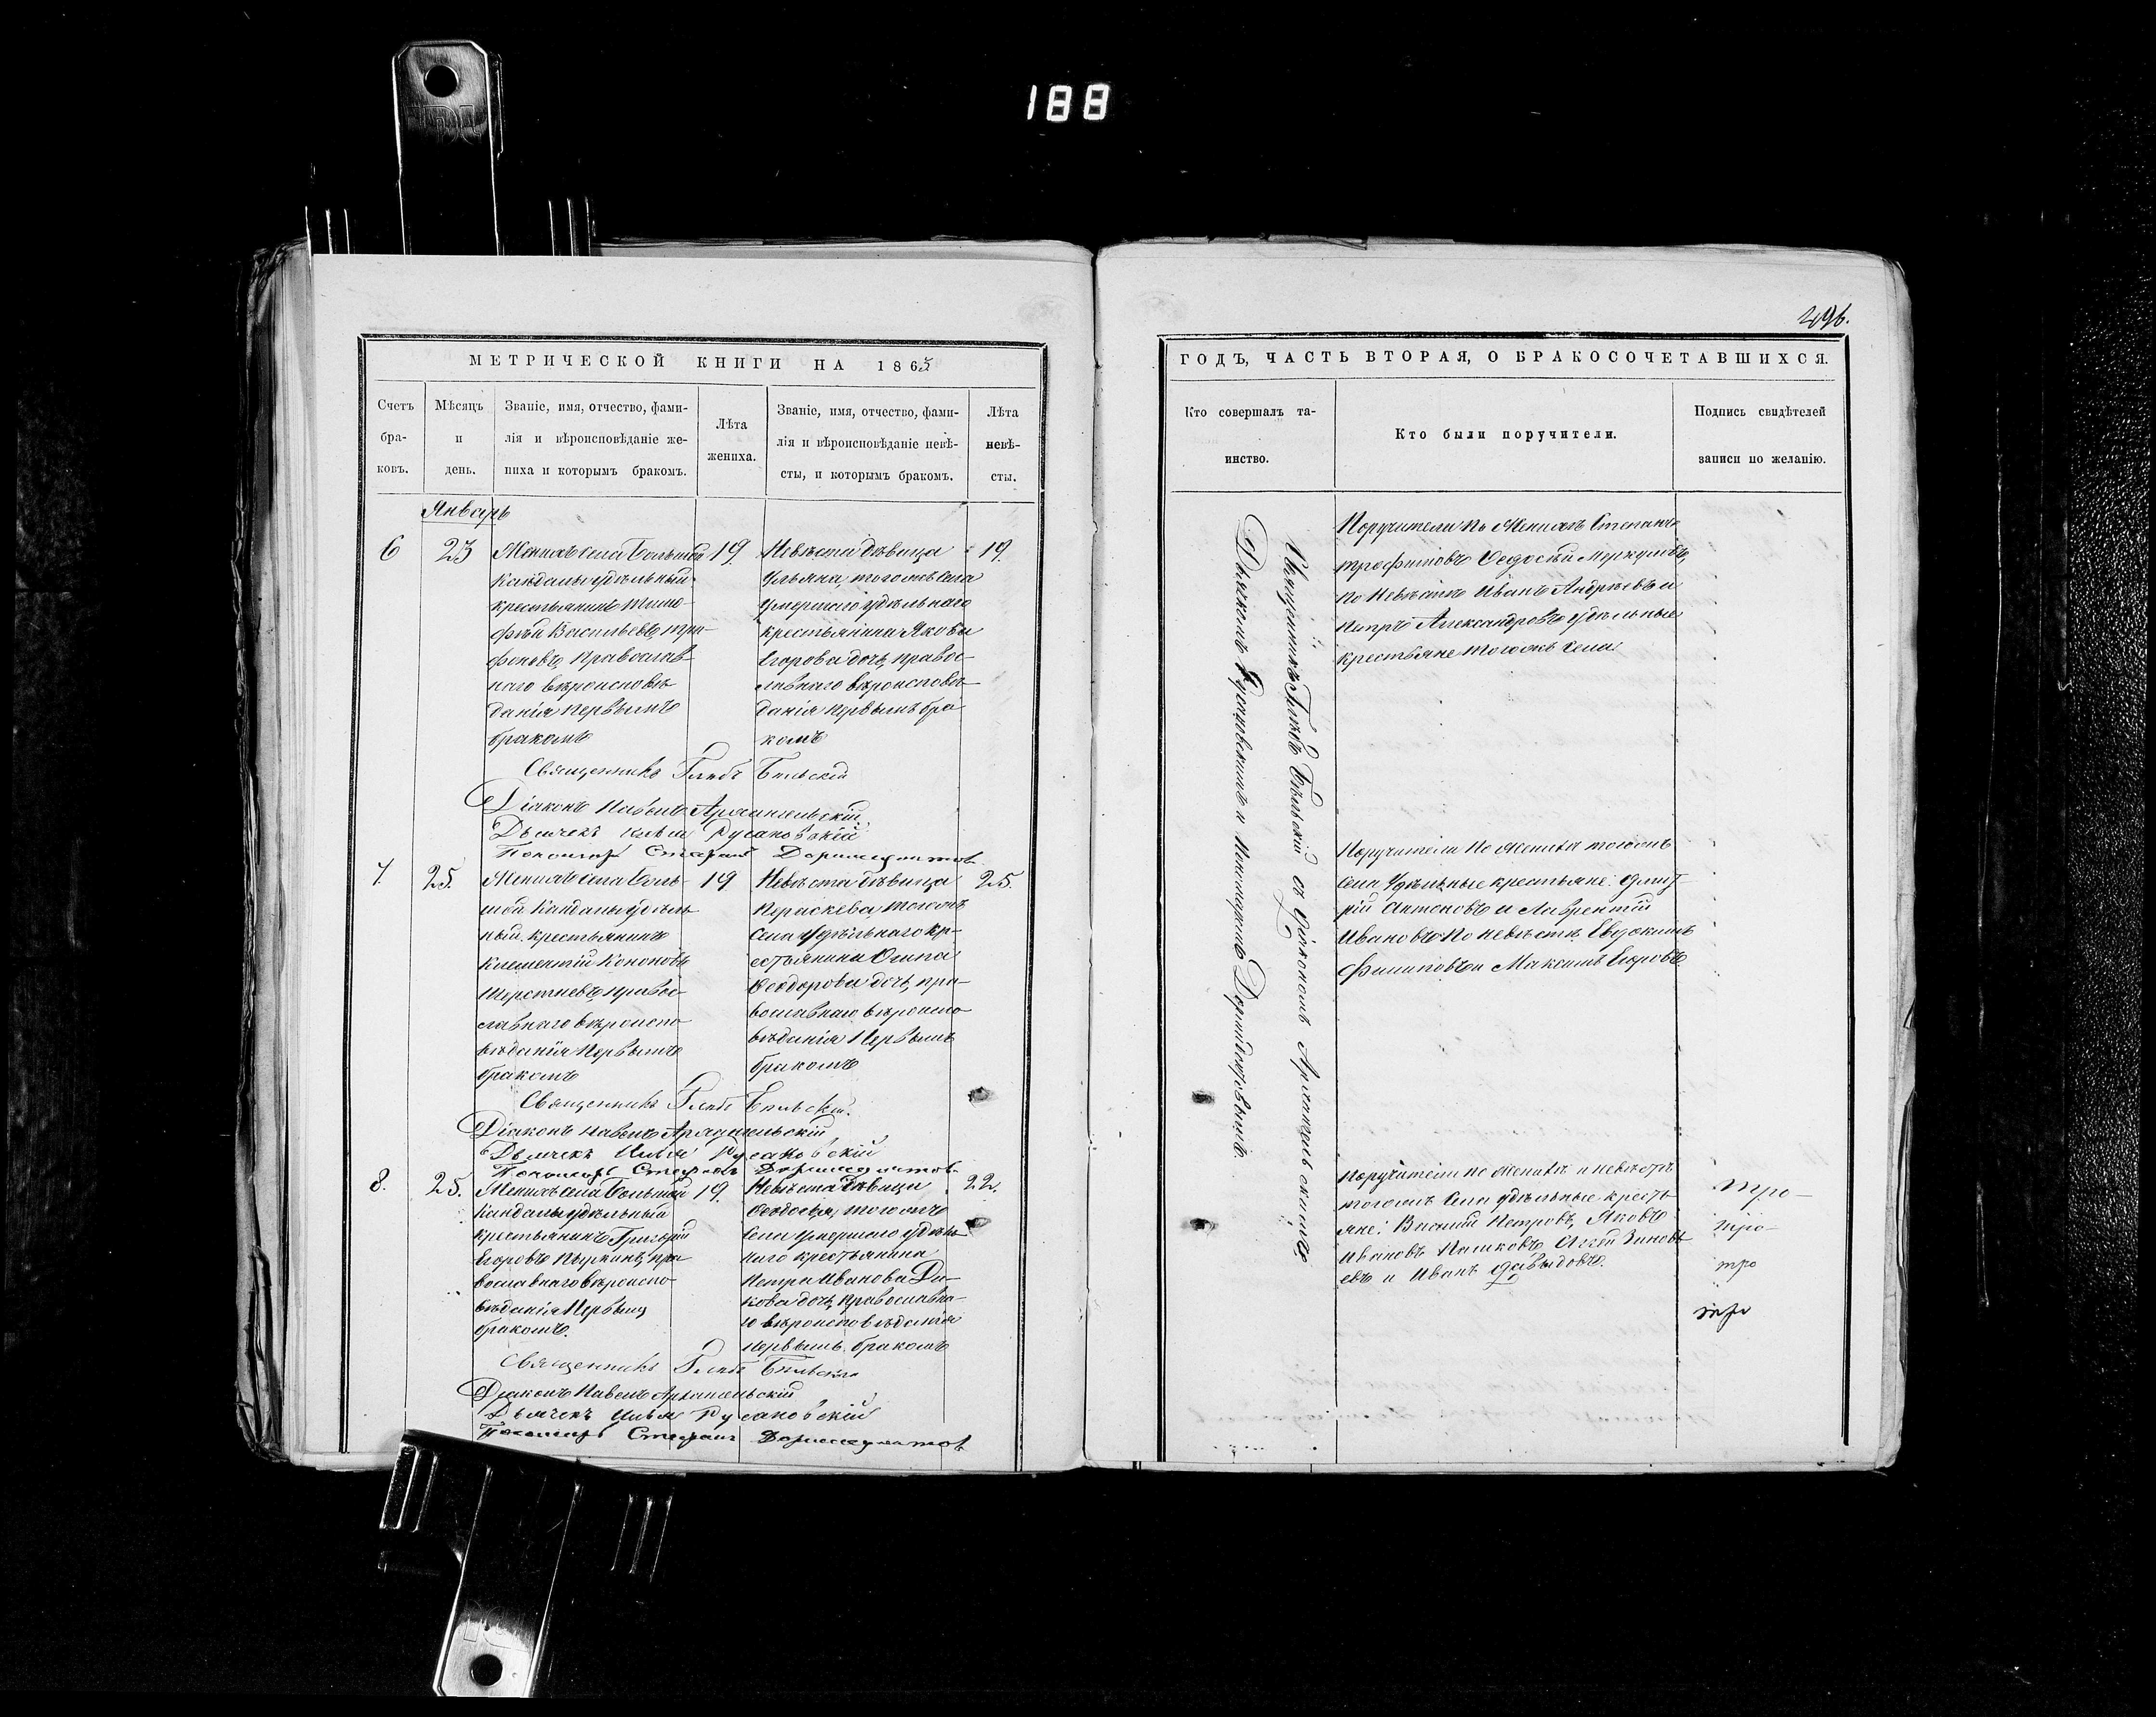 188
МЕТРИЧЕСКОЙ КНИГИ НА 1865
Счетъ бра-ковъ.
Мѣсяцъ и день.
Званіе, имя, отчество, фами-
лія и вѣроисповѣданіе же-
ниха и которымъ бракомъ.
Лѣта жениха.
Званіе, имя, отчество, фами-
лія и вѣроисповѣданіе невѣ-
сты, и которымъ бракомъ.
Лѣта невѣ-сты.
Январь
6
23
Женихъ села Большой
Кандалы удѣльный
крестьянинъ Тимо-
фѣй Васильевъ
православ-
наго вѣроисповѣ-
данія первымъ
бракомъ
19.
Невѣста дѣвица
Ульяна, тогожъ села
умершаго удѣльнаго
крестьянина Якова
Егорова дочь, правос-
лавнаго вѣроисповѣ-
данія первымъ бра
комъ
19.
Священникъ Глебъ Бельскій
Діаконъ Павелъ Архангельскій
Дьячекъ Илья Русановскій
Пономарь Стефанъ Доримедонтовъ
7.
25.
Женихъ села Боль-
шой Кандалы удѣль
ный крестьянинъ
Климентій Кононовъ
правос-
лавнаго вѣроиспо-
вѣданія первымъ
бракомъ
19
Невѣста дѣвица
Параскева тогожъ
села удѣльнаго кр-
естьянина Осипа
Ѳеодорова дочь, пра-
вославнаго вѣроиспо-
вѣданія первымъ
бракомъ
25.
Священникъ Глебъ Бельскій.
Діаконъ Павелъ Архангельскій
Дьячекъ Илья Русановскій
Пономарь Стефанъ Доримедонтовъ
8.
25.
Женихъ села Большой
Кандалы удѣльный
крестьянинъ Григорій
Егоровъ Пыркинъ, пра
вославнаго вѣроиспо-
вѣданія первымъ
бракомъ.
19.
Невѣста дѣвица
Ѳеодосья, тогожъ
села умершаго удѣль
наго крестьянина
Петра Иванова Ди-
кова дочь, православна-
го вѣроисповѣданія
первымъ бракомъ
22.
Священникъ Глебъ Бельскій
Діаконъ Павелъ Архангельскій
Дьячекъ Илья Русановскій
Пономарь Стефанъ Доримедонтовъ
296.
ГОДЪ, ЧАСТЬ ВТОРАЯ, О БРАКОСОЧЕТАВШИХСЯ.
Кто совершалъ та-
инство.
Кто были поручители.
Подпись свидѣтелей
записи по желанію.
Священникъ Глѣбъ Бѣльскій съ Діакономъ Архангельскимъ
Дьячкомъ Русановскимъ и Пономаремъ Доримедонтовымъ.
Поручители по женихѣ Степанъ
Трофимовъ Ѳедосѣй Меркуловъ,
по невѣстѣ Иванъ Андреевъ и
Петръ Александровъ удѣльные
крестьяне тогожъ села
Поручители по женихѣ тогожъ
села удѣльные крестьяне: Дмит-
рій Антоновъ и Лаврентій
Ивановъ по невѣстѣ Евдокимъ
Филиповъ и Максимъ Егоровъ
Поручители по женихѣ и невѣстѣ
тогожъ села удѣльные кресть
яне: Василій Петровъ, Яковъ
Ивановъ Пашковъ, Аггей Зиновь
евъ и Иванъ Давыдовъ.
тро-
тро-
тро
тро